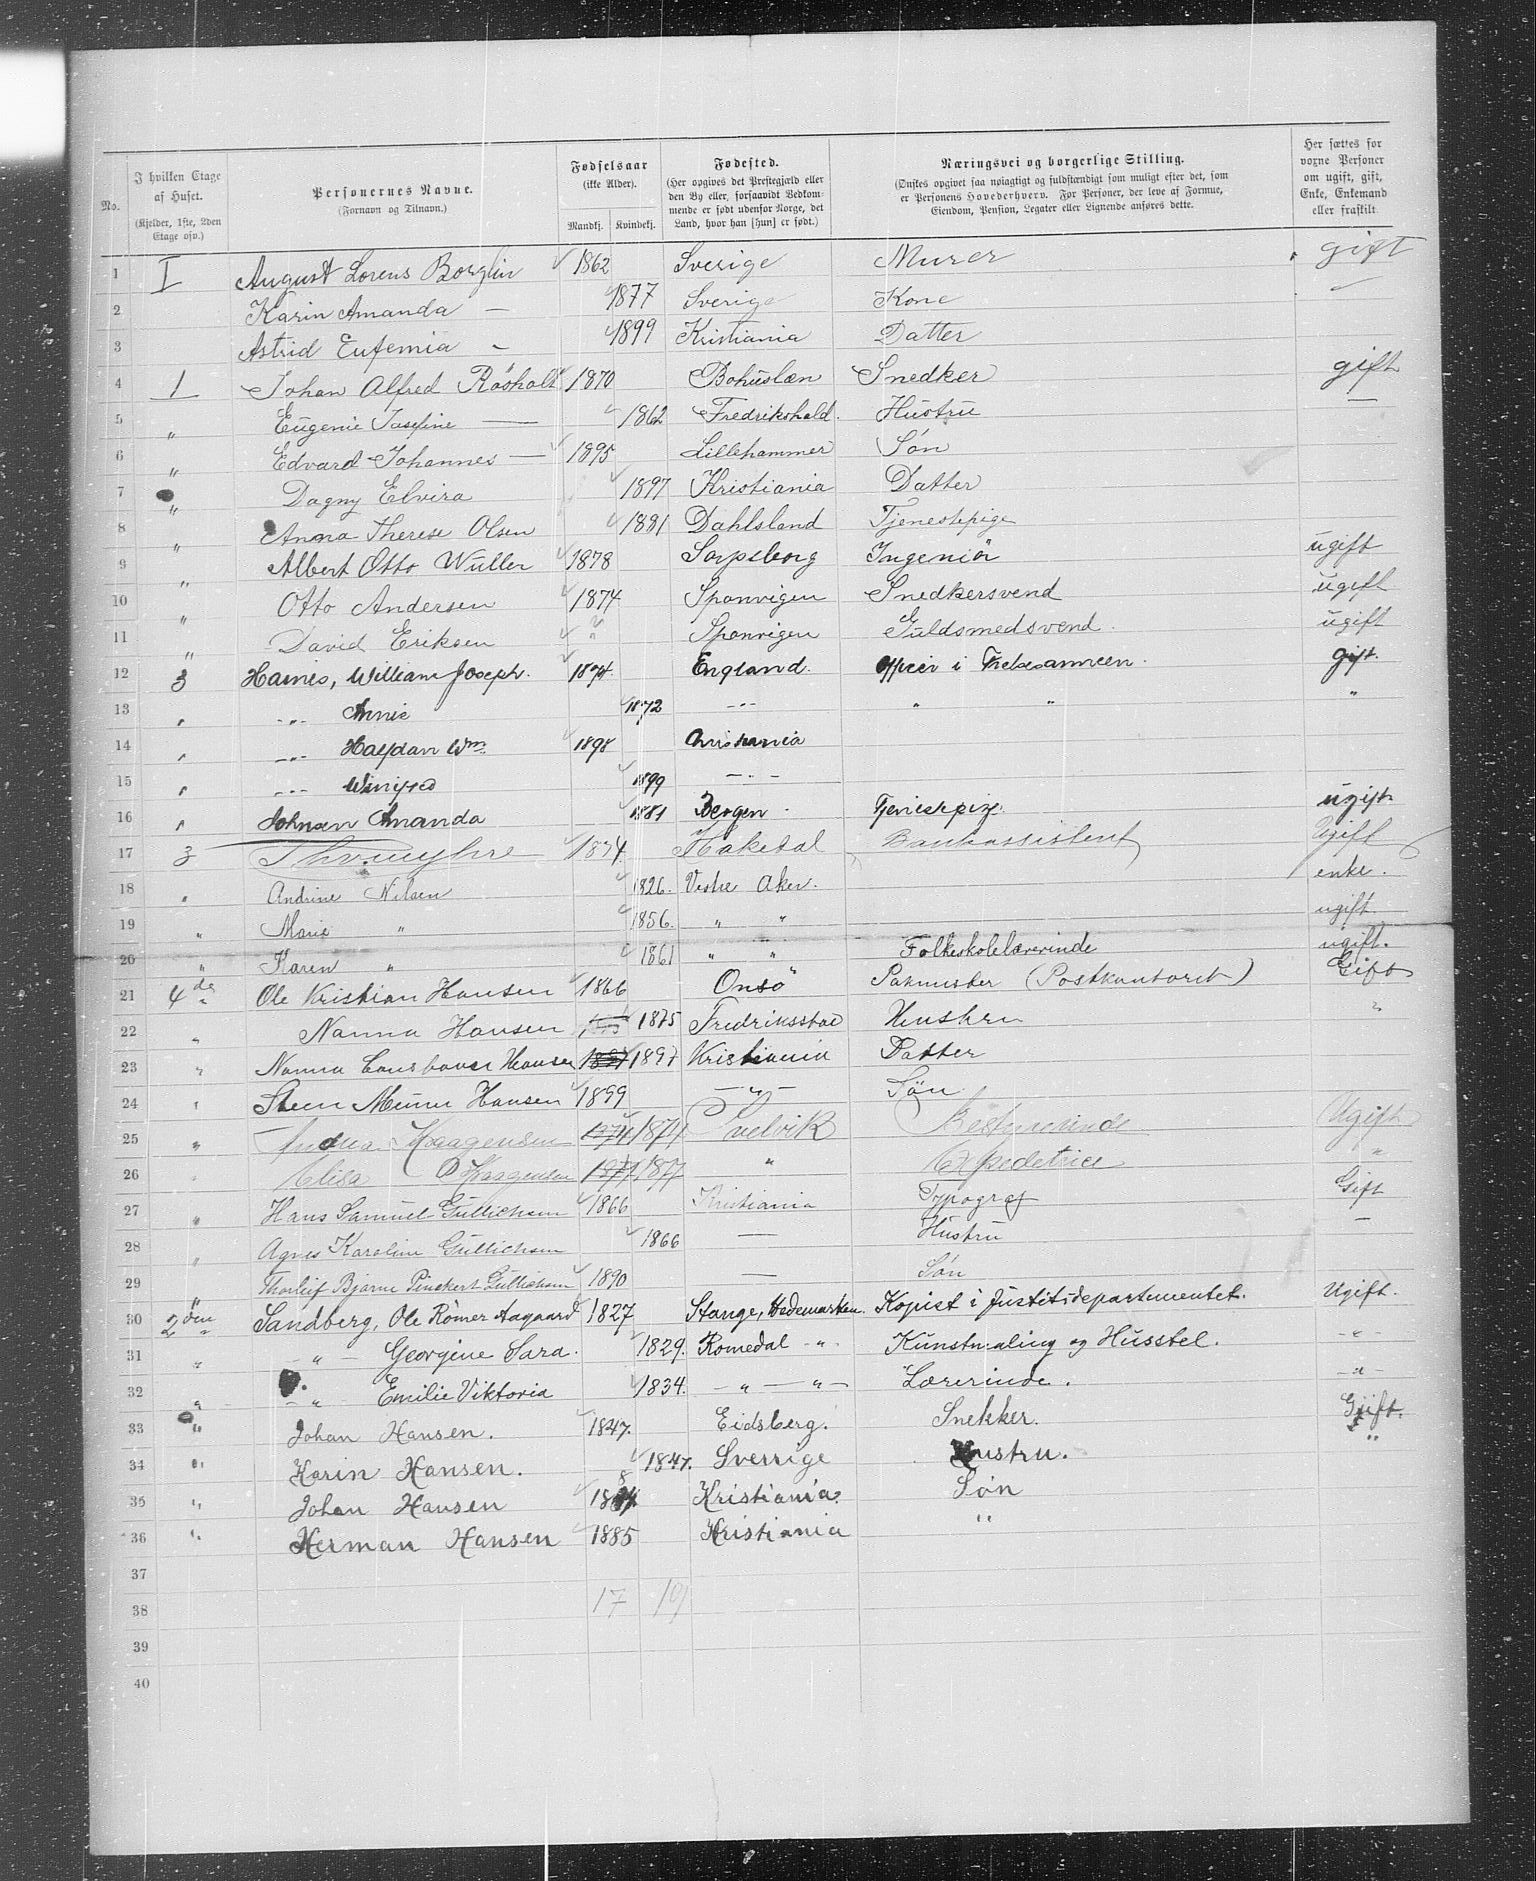 No. I hvilken Etage af Huset. (Kjelder, 1ste, 2den Etage osv.) Personernes Navne. (Fornavn og Tilnavn.) Fødselsaar (ikke Alder). Mandkj. Kvindekj. Fødested. (Her opgives det Prestegjæld eller den By eller, forsaavidt Vedkommende er født udenfor Norge, det Land, hvor han [hun] er født.) Næringsvei og borgerlige Stilling. (Ønskes opgivet saa nøiagtigt og fuldstændigt som muligt efter det, som er Personens Hovederhverv. For Personer, der leve af Formue, Eiendom, Pension, Legater eller Lignende anføres dette. Her sættes for voxne Personer om ugift, gift, Enke, Enkemand eller fraskilt
1 I August Lorens Borglin 1862 Sverige Murer gift
2 Karin Amanda — 1877 Sverige Kone —
3 Astrid Eufemia - 1899 Kristiania Datter
4 1 Johan Alfred Rösholt 1870 Bohuslæn Snedker gift
5 " Eugenie Josefine — 1862 Fredrikshald. Hustru —
6 " Edvard Johannes — 1895 Lillehammer Søn
7 " Dagny Elvira 1897 Kristiania Datter
8 " Anna Therese Olsen 1881 Dahlsland Tjenestepige
9 " Albert Otto Wüller 1878 Sarpsborg Ingeniör ugift
10 " Otto Andersen 1874 Sponvigen Snedkersvend ugift
11 " David Eriksen " Sponvigen Guldsmedsvend. ugift
12 3 Haines, William Joseph. 1874. England. Officer i Frelsesarmeen. gift.
13 " -"- Annie 1872 -"- " " "
14 " -"- Halfdan Wm. 1898 Christiania
15 " -"- Winifred 1899 -"-
16 " Johnsen Amanda 1881 Bergen. Tjenestepige. ugift
17 3 1874 Haketal Bankassistent Ugift
18 " Andrine Nilsen 1826. Vestre Aker. enke.
19 " Marie " 1856. " " ugift
20 " Karen " 1861 " " Folkeskolelærerinde ugift.
21 4de " Ole Kristian Hansen 1866 Onsö Pakmester (Postkontoret) Gift
22 " Nanna Hansen 1875 Fredriksstad Hustru "
23 " Nanna Hansen 1897 Kristiania Datter
24 " Hansen 1899 —"— Søn
25 " Andrea Haagensen 1874 1874 Svelvik Bestyrerinde Ugift
26 " Elisa Haagensen 1877 1877 " Expeditrice "
27 " Hans Samuel Gullichsen 1866 Kristiania Typograf Gift
28 " Agnes Karoline Gullichsen 1866 — Hustru —
29 " Thorleif Bjarne Pinckert Gullichsen 1890 — Søn
30 2den " Sandberg, Ole Römer Aagaard 1827 Stange, Hedemarken. Kopist i Justitsdepartementet. Ugift.
31 " —"— Georgine Sara. 1829. Romedal -"- Kunstmaling og Husstel. -"-
32 " —"— Emilie Viktoria 1834. —"—"— Lærerinde. -"-
33 " Johan Hansen. 1847. Eidsberg. Snekker. Gift.
34 " Karin Hansen. 1847. Sverrige Hustru. "
35 " Johan Hansen Kristiania. Søn
36 " Herman Hansen 1885 Kristiania "
37
38 17 19
39
40